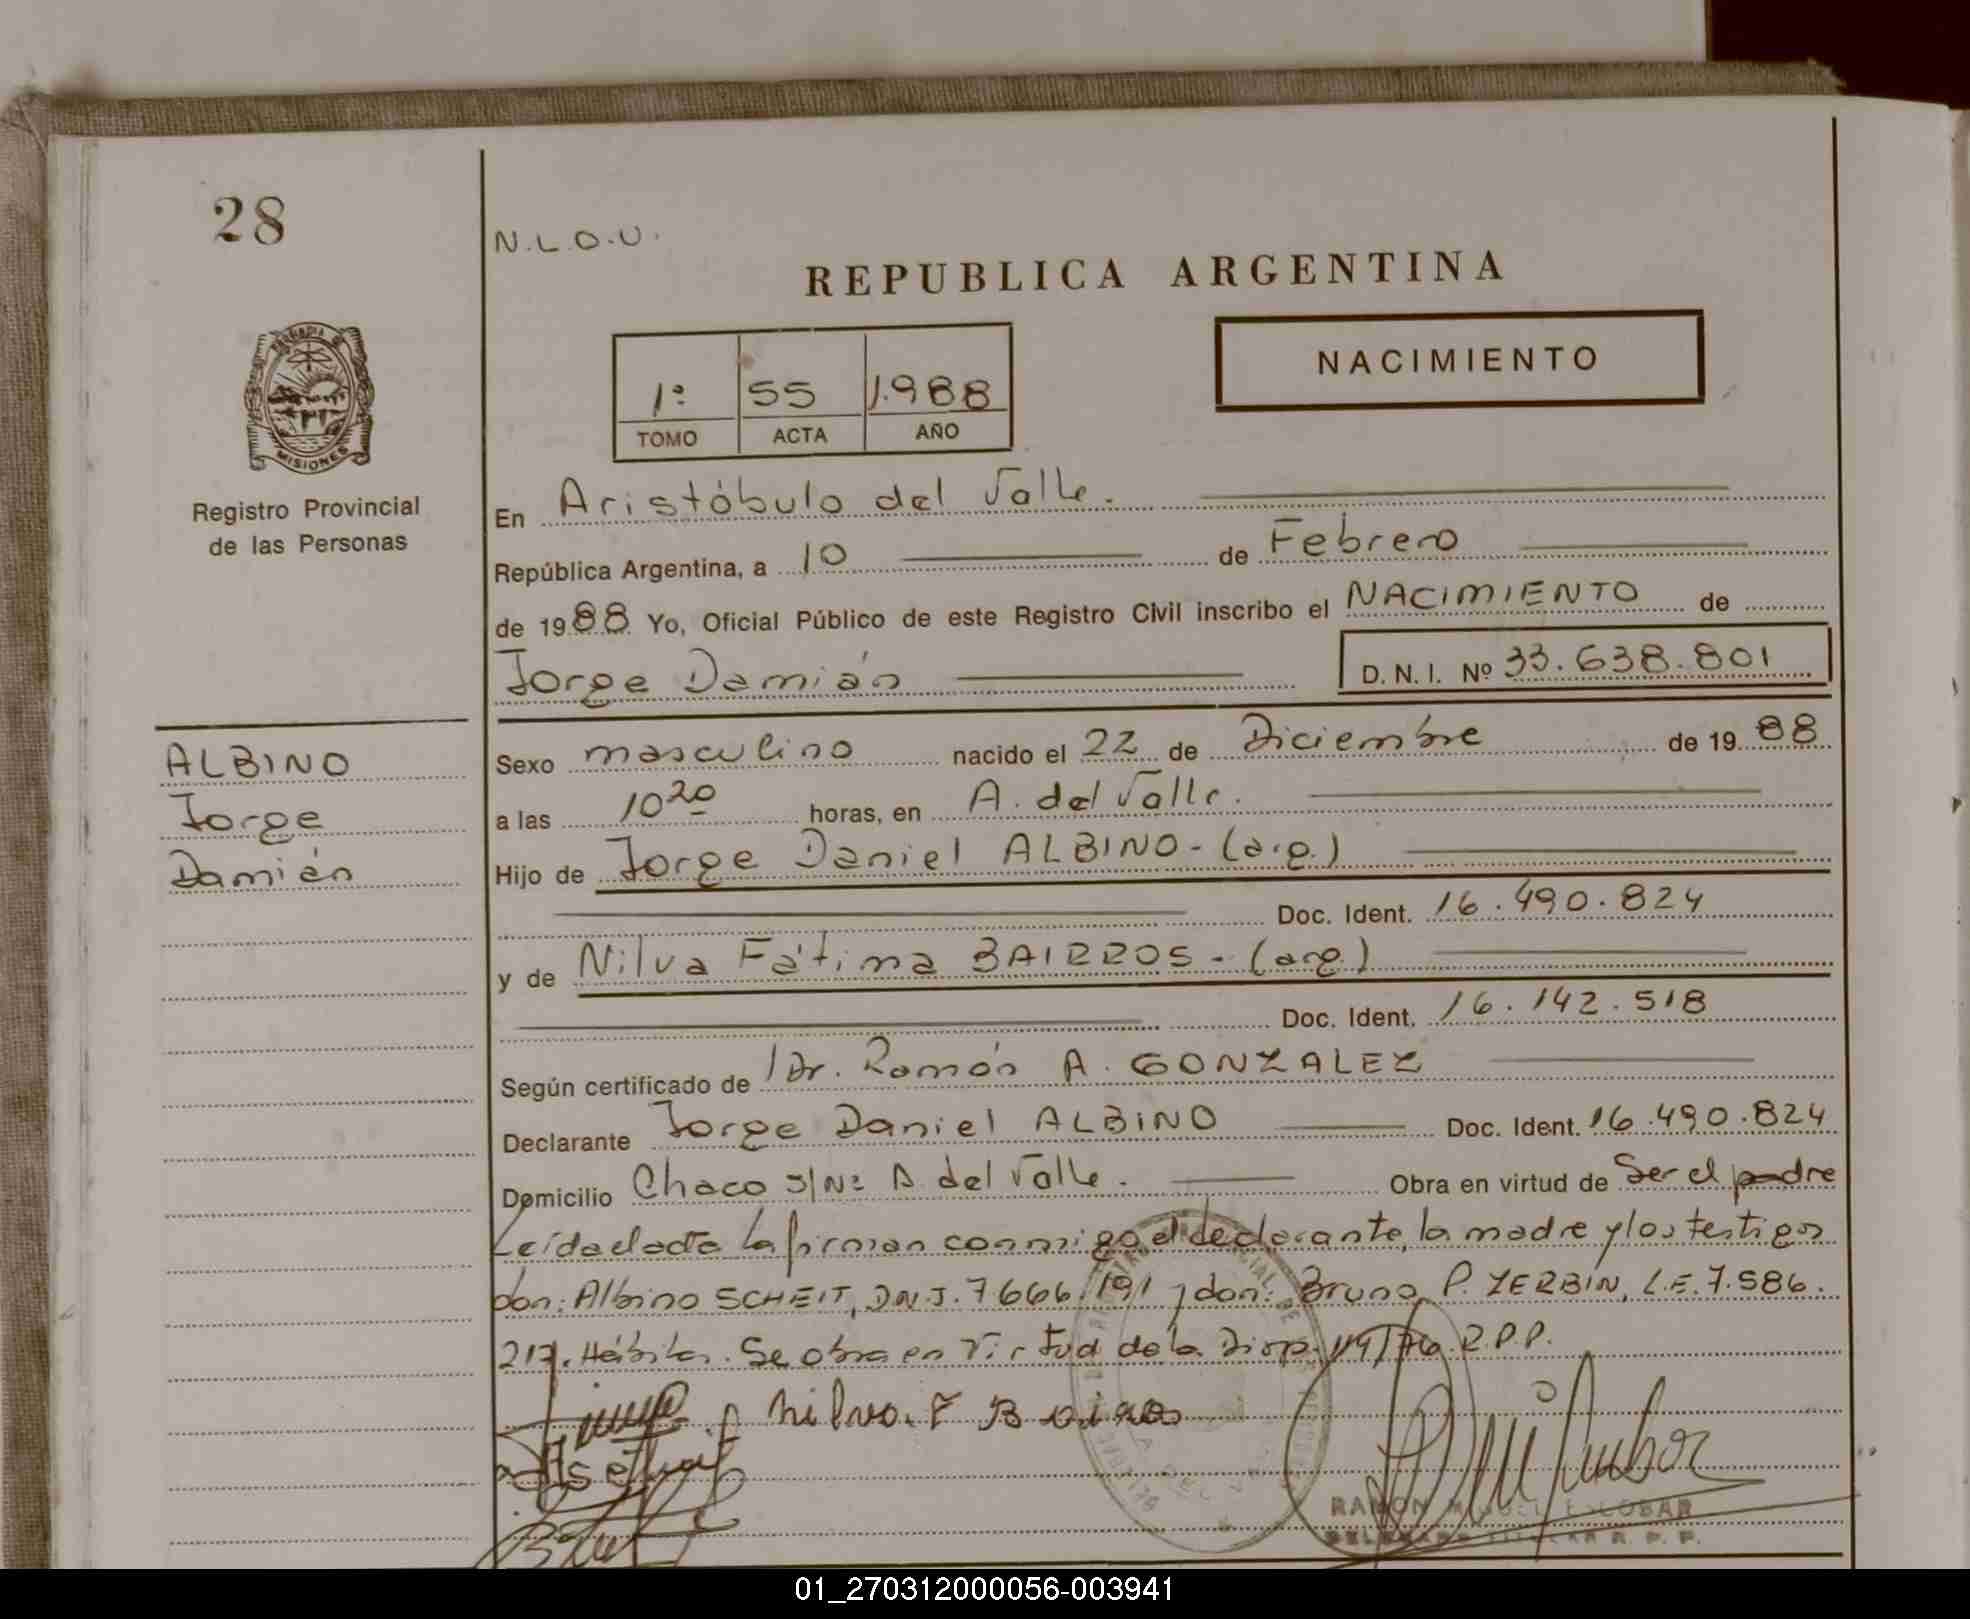 28
N.L.O.U.
REPUBLICA ARGENTINA
1º 55 1.988
TOMO ACTA AÑO
NACIMIENTO
MISIONES
Registro Provincial
de las Personas
En Aristóbulo del Valle.
República Argentina, a 10 de Febrero
de 1988 Yo, Oficial Público de este Registro Civil inscribo el NACIMIENTO de
Jorge Damián D.N.I. Nº 33.638.801
ALBINO
Jorge
Damián
Sexo masculino nacido el 22 de Diciembre de 1988
a las 10 20 horas, en A. del Valle.
Hijo de Jorge Daniel ALBINO - (arg.)
Doc. Ident. 16.490.824
y de Nilva Fátima BAIRROS - (arg.)
Doc. Ident. 16.142.518
Según certificado de Dr. Ramón A. GONZALEZ
Declarante Jorge Daniel ALBINO Doc. Ident. 16.490.824
Domicilio Chaco s/Nº A. del Valle. Obra en virtud de Ser el padre
Leída el acta la firman conmigo el declarante, la madre y los testigos
don: Albino SCHEIT, D.N.I. 7666.191 y don: Bruno P. ZERBIN, L.E. 7.586.
217. Hábiles. Se obra en Virtud de la Disp. 119/76. R.P.P.
Nilva. F Bairros
RAMON MIGUEL ESCOBAR
01_270312000056-003941